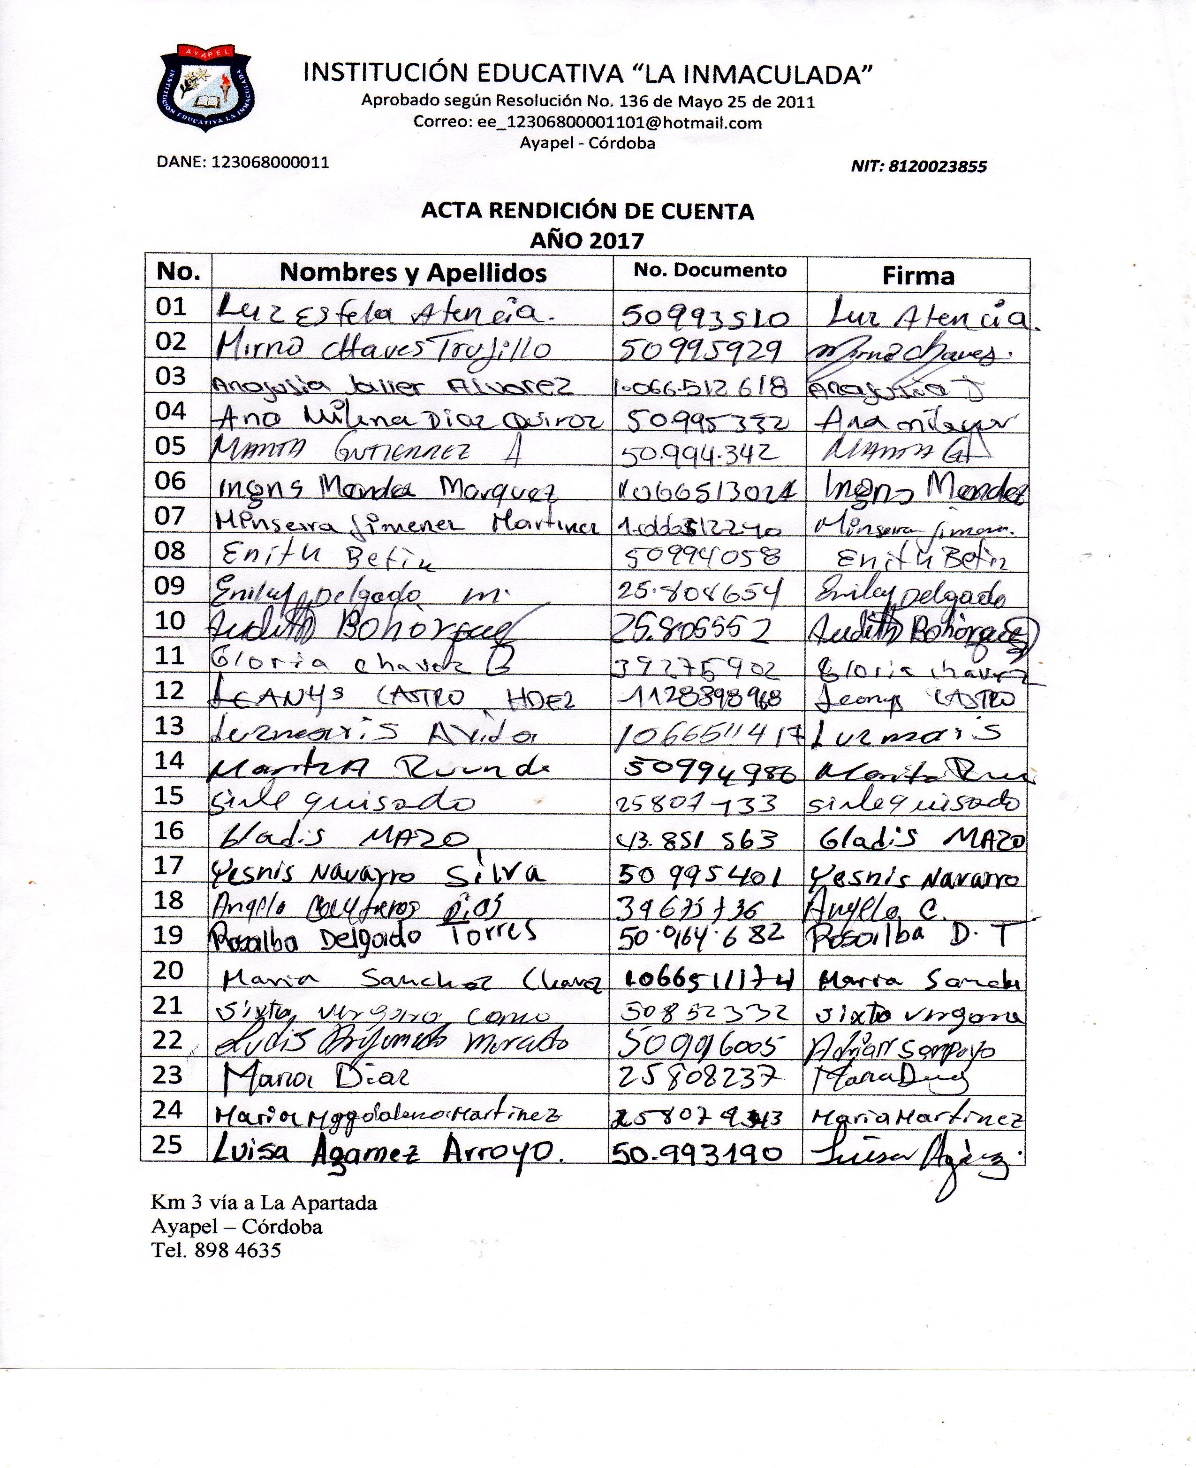 AYAPEL
INSTITUCIÓN EDUCATIVA LA INMACULADA
INSTITUCIÓN EDUCATIVA “LA INMACULADA”
Aprobado según Resolución No. 136 de Mayo 25 de 2011
Correo: ee_12306800001101@hotmail.com
Ayapel - Córdoba
DANE: 123068000011 NIT: 8120023855
ACTA RENDICIÓN DE CUENTA
AÑO 2017
No. Nombres y Apellidos No. Documento Firma
01 Luz Estela Atencia. 50993510 Luz Atencia.
02 Mirna CHaves Trujillo 50995929 Mirna chaves.
03 Javier Alvarez 1.066.512618
04 Ana Milena Diaz Quiroz 50995332 Ana
05 MARTA GUTIERREZ A 50.994.342 MARTA G
06 Mendez Marquez Mendez
07 Jimenez Martinez
08 Enith Betin 50994058 Enith Betin
09 Delgado m. 25.808654 Delgado
10 Judith Bohórquez 25.805552 Judith Bohórquez
11 Gloria chavez B 39275902 Gloria chavez
12 LEANYS CASTRO HDEZ 1128898968 Leanys CASTRO
13 Luzmaris Avila 1066511417 Luzmaris
14 50994986
15 sirle quisado 25807133 sirle quisado
16 Gladis MAZO 43.851 563 Gladis MAZO
17 Yesnis Navarro Silva 50 995401 Yesnis Navarro
18 Angela 39675736 Angela C.
19 Rosalba Delgado Torres 50.0164.682 Rosalba D. T
20 Maria Sanchez Chavez 1066511174 Maria
21 Sixta 50852332 Sixta
22 50996005
23 Maria Diaz 25808237 Maria
24 Maria Magdalena Martinez Maria Martinez
25 Luisa Agamez Arroyo. 50.993190 Luisa
Km 3 vía a La Apartada
Ayapel – Córdoba
Tel. 898 4635